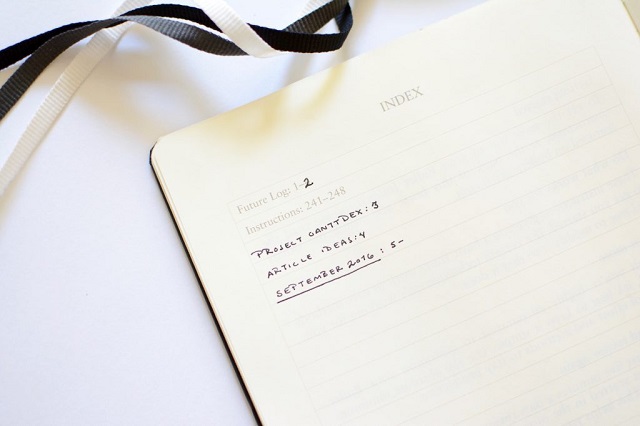 INDEX
Future Log: 1-2
Instructions: 241–248
PROJECT GANTTDEX: 3
ARTICLE IDEAS: 4
SEPTEMBER 2016 : 5-